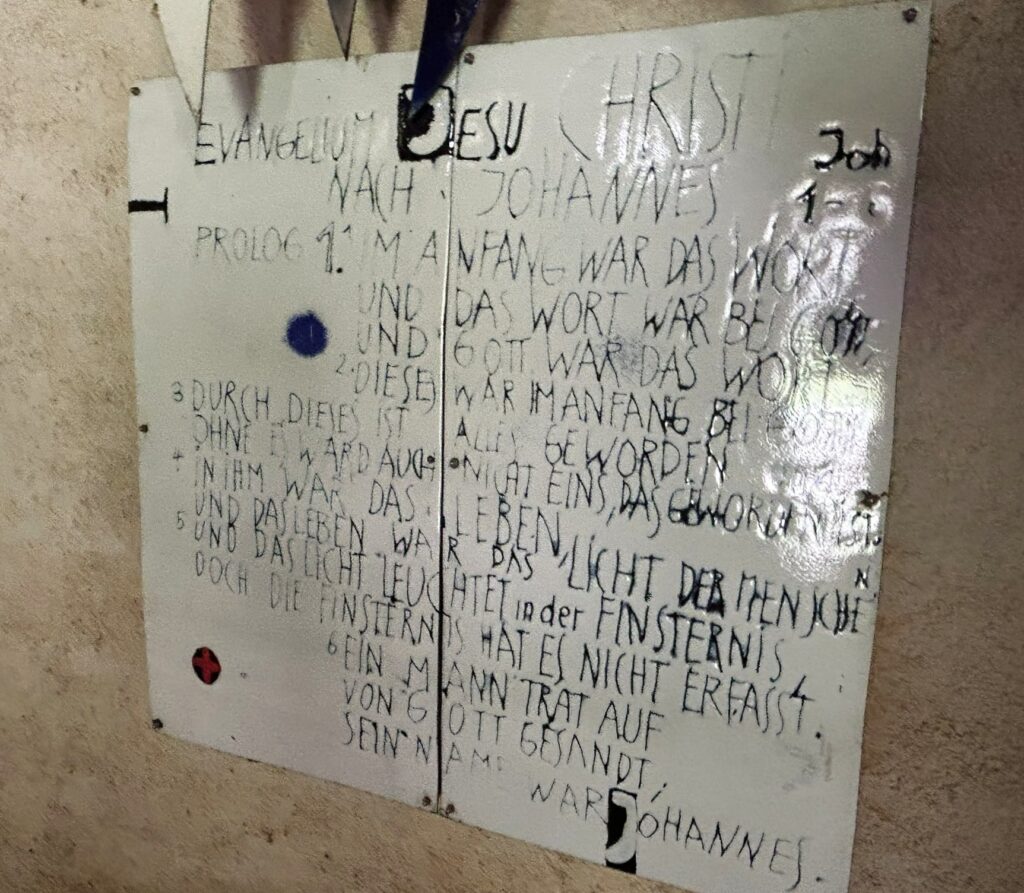 EVANGELIUM JESU CHRISTI
Joh
NACH JOHANNES
1-
I
PROLOG 1. IM ANFANG WAR DAS WORT
UND DAS WORT WAR BEI GOTT,
UND GOTT WAR DAS WORT
2. DIESES WAR IM ANFANG BEI GOTT
3 DURCH DIESES IST ALLES GEWORDEN
OHNE ES WARD AUCH NICHT EINS, DAS GEWORDEN IST.
4 IN IHM WAR DAS LEBEN,
UND DAS LEBEN WAR DAS LICHT DER MENSCHEN.
5 UND DAS LICHT LEUCHTET in der FINSTERNIS
DOCH DIE FINSTERNIS HAT ES NICHT ERFASST.
6 EIN MANN TRAT AUF
VON GOTT GESANDT,
SEIN NAME
WAR JOHANNES.